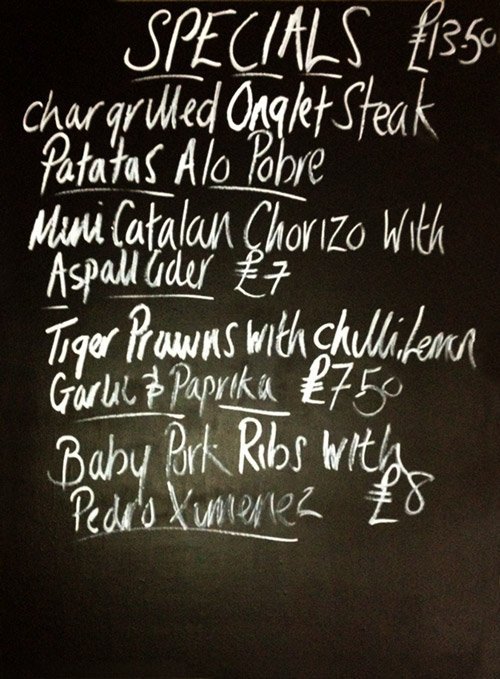 SPECIALS £13.50
chargrilled Onglet Steak
Patatas Alo Pobre
Mini Catalan Chorizo with
Aspall Cider £7
Tiger Prawns with chilli, Lemon
Garlic & Paprika £7.50
Baby Pork Ribs with
Pedro Ximenez £8